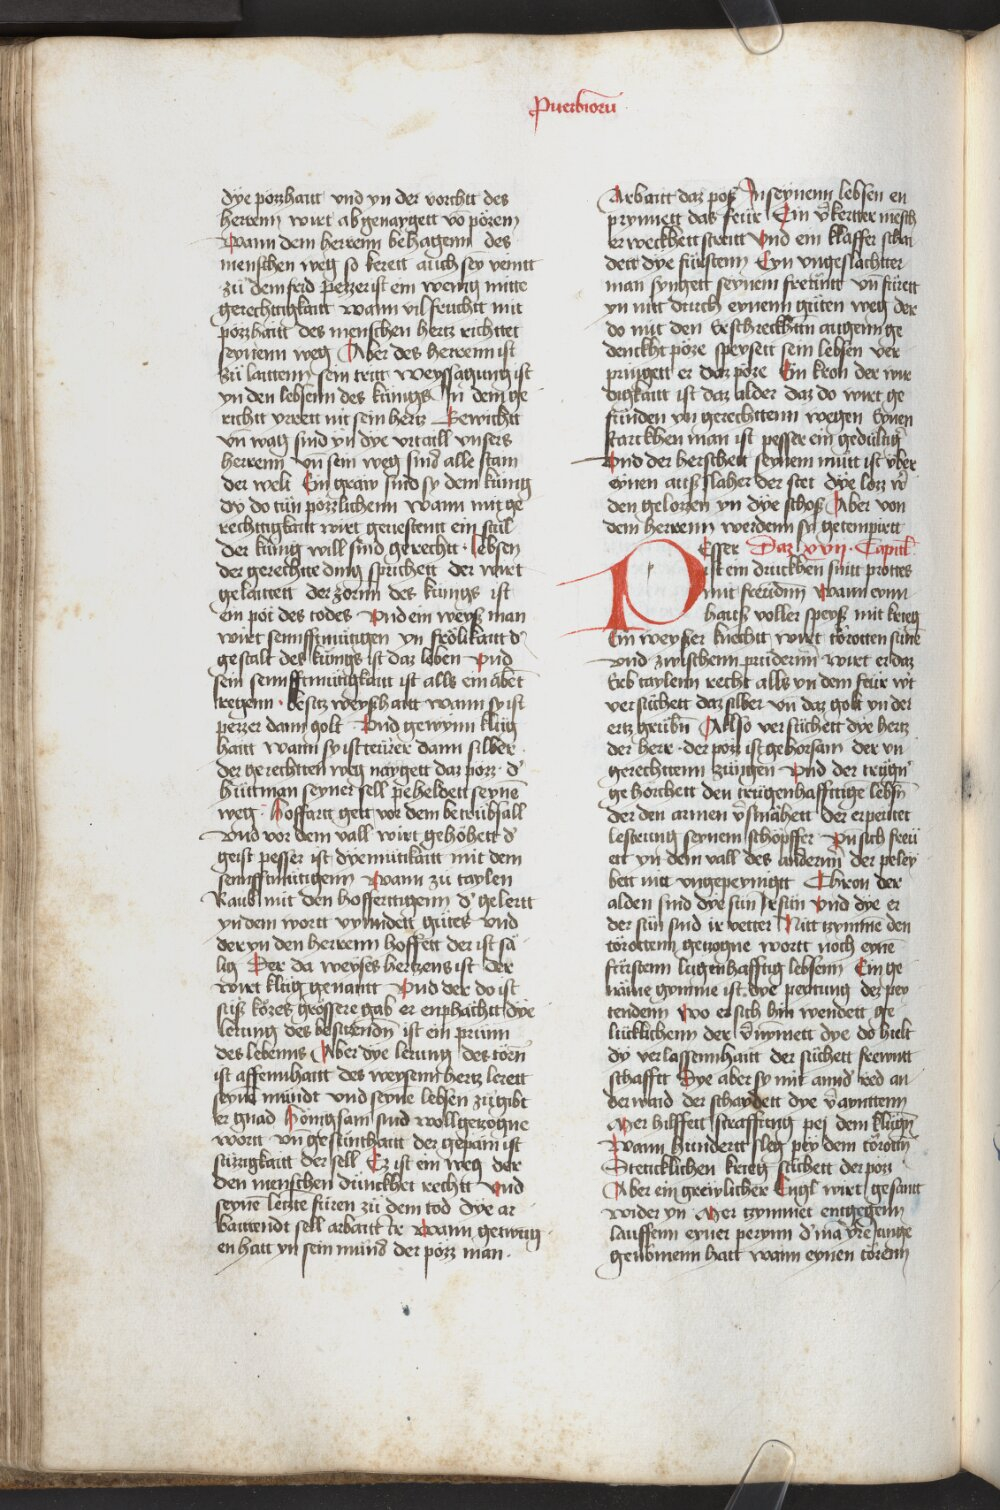 Puerbiorū
dÿe pozzhaitt vnd yn der vorchtt des
herrenn wirt abgenaygett vō pözem
Wann dem herrenn behagenn des
menschen weg so kerett auch sey veintt
zü dem frid Pezzer ist ein wenig mitte
gerechtigkaitt wann vil feuchtt mit
pozzhaitt des menschen hertz richttet
seynenn weg Aber des herrenn ist
zü laittenn sein tritt weyssagung ist
yn den lebsenn des künigs In dem ge
richtt yrrett nit sein hertz Gewichtt
vn̄ wag sind yn dye vrtaill vnsers
herrenn vn̄ sein weg sind alle stain
der welt Ein graw sind sy dem künig
dy do tün pözzlichenn wann mit ge
rechttigkaitt wirt geuestent ein stül
der künig will sind gerechtt lebsen
der gerechtte ding sprichett der wirt
gelaittett der zornn des künigs ist
ein pot des todes Vnd ein weyß man
wirt senfftmüttigen yn frölikaitt d'
gestalt des künigs ist daz leben Vnd
sein senfftmütigkaitt ist alls ein abēt
regenn besitz weyshaitt wann sy ist
pezzer dann golt Vnd gewynn klüg
haitt wann sy ist teürer dann silber
der gerechtten weg naygett daz pözz d'
hüttman seyner sell peheldett seynē
weg Hoffartt gett vor dem betrübsall
Vnd vor dem vall wirt gehöhett d'
geist pesser ist dyemütikaitt mit dem
senfftmütigenn Wann zü taylen
Raub mit den hofferttigenn d' gelertt
yn dem wortt vynndett gütes Vnd
der yn den herrenn hoffett der ist sä
lig Der da weyses hertzens ist der
wirt klüg genantt Vnd der do ist
süß közes grössere gab er enphächtt dye
lerung des besitzendn̄ ist ein prünn
des lebenns Aber dye lerung des toen̄
ist affennhaitt des weysenn hertz lerett
seynē mündt vnd seyne lebsen zü gibt
er gnad Hönigsam sind wollgezogne
wortt vn̄ gesünthaitt der gepain ist
süzzigkaitt der sell Ez ist ein weg der
den menschen dünckhet rechtt Vnd
seyne letzte füren zü dem tod dye ar
baittendt sell arbaitt ir Wann getwūg
en hatt yn sein mund der pözz man
Arbaitt daz poß In seynenn lebsen en
prynnett das feür Ein v̄kertter mēsch
erweckhett streitt Vnd ein klaffer schai
dett dye fürstenn Eyn vngeslachtter
man syngett seynem freünt vn̄ fürett
yn nitt durch eynenn güten weg der
do mit den Erschreckhtn̄ augenn ge
denckht pöze speysett sein lebsen ver
pringett er daz pöze Ein kron der wir
digkaitt ist daz alder daz do wirt ge
fünden yn gerechttenn wegen Eynen
starckhen man ist pesser ein gedültiḡ
Vnd der herschett seynem mütt ist v̈ber
eynen außslaher der stet dye lozz w̄
den gelozzen yn dye schoß Aber von
dem herrenn werdenn sy getempirtt
PEsser Daz xvij Capitl̄
ist ein druckhen snitt prottes
mit freüdnn Wann eynn
hauß voller speyß mit krieg
Ein weyser knechtt wirt törotten sune
Vnd zwischenn prüdernn wirt er daz
Erb taylenn recht alls yn dem feür wt
versüchett daz silber vn̄ daz golt yn der
ertz grübn̄ Allso versüchett dye hertz
der herr der pozz ist gehorsam der vn
gerechttenn züngen Vnd der trügn̄'
gehorchett den trügenhafftige lebsn̄
der den armen v̄smähett der erpeutet
lestrung seynem schöpffer Vn̄ sich freü
ett yn dem vall des andernn der peley
bett nitt vngepeynigtt Chron der
alden sind dye sün ir sün Vnd dye er
der sün sind ir vetter Nitt tzymme den
törottenn getzogne wortt noch eynē
fürstenn lugenhafftig lebsenn Ein ge
näme gymme ist dye peitung der pey
tendenn Wo er sich hin wendett ge
lücklichenn der v̄nymett dye do hielt
dy verlassennhaitt der süchett freuntt
schafftt Dye aber sy mit annd' red an
derwaid der schaydett dye v̄aynttenn
Mer hilffett straffung pei dem klügn̄
Wann hundertt sleg pey dem törottn̄
Stettiklichen krieg suchett der pozz
Aber ein grewlicher Engl wirt gesantt
wider yn Mer tzymmet entgegenn
lauffenn eyner perynn d' mā yre iunge
genomenn hatt wann eynen törenn